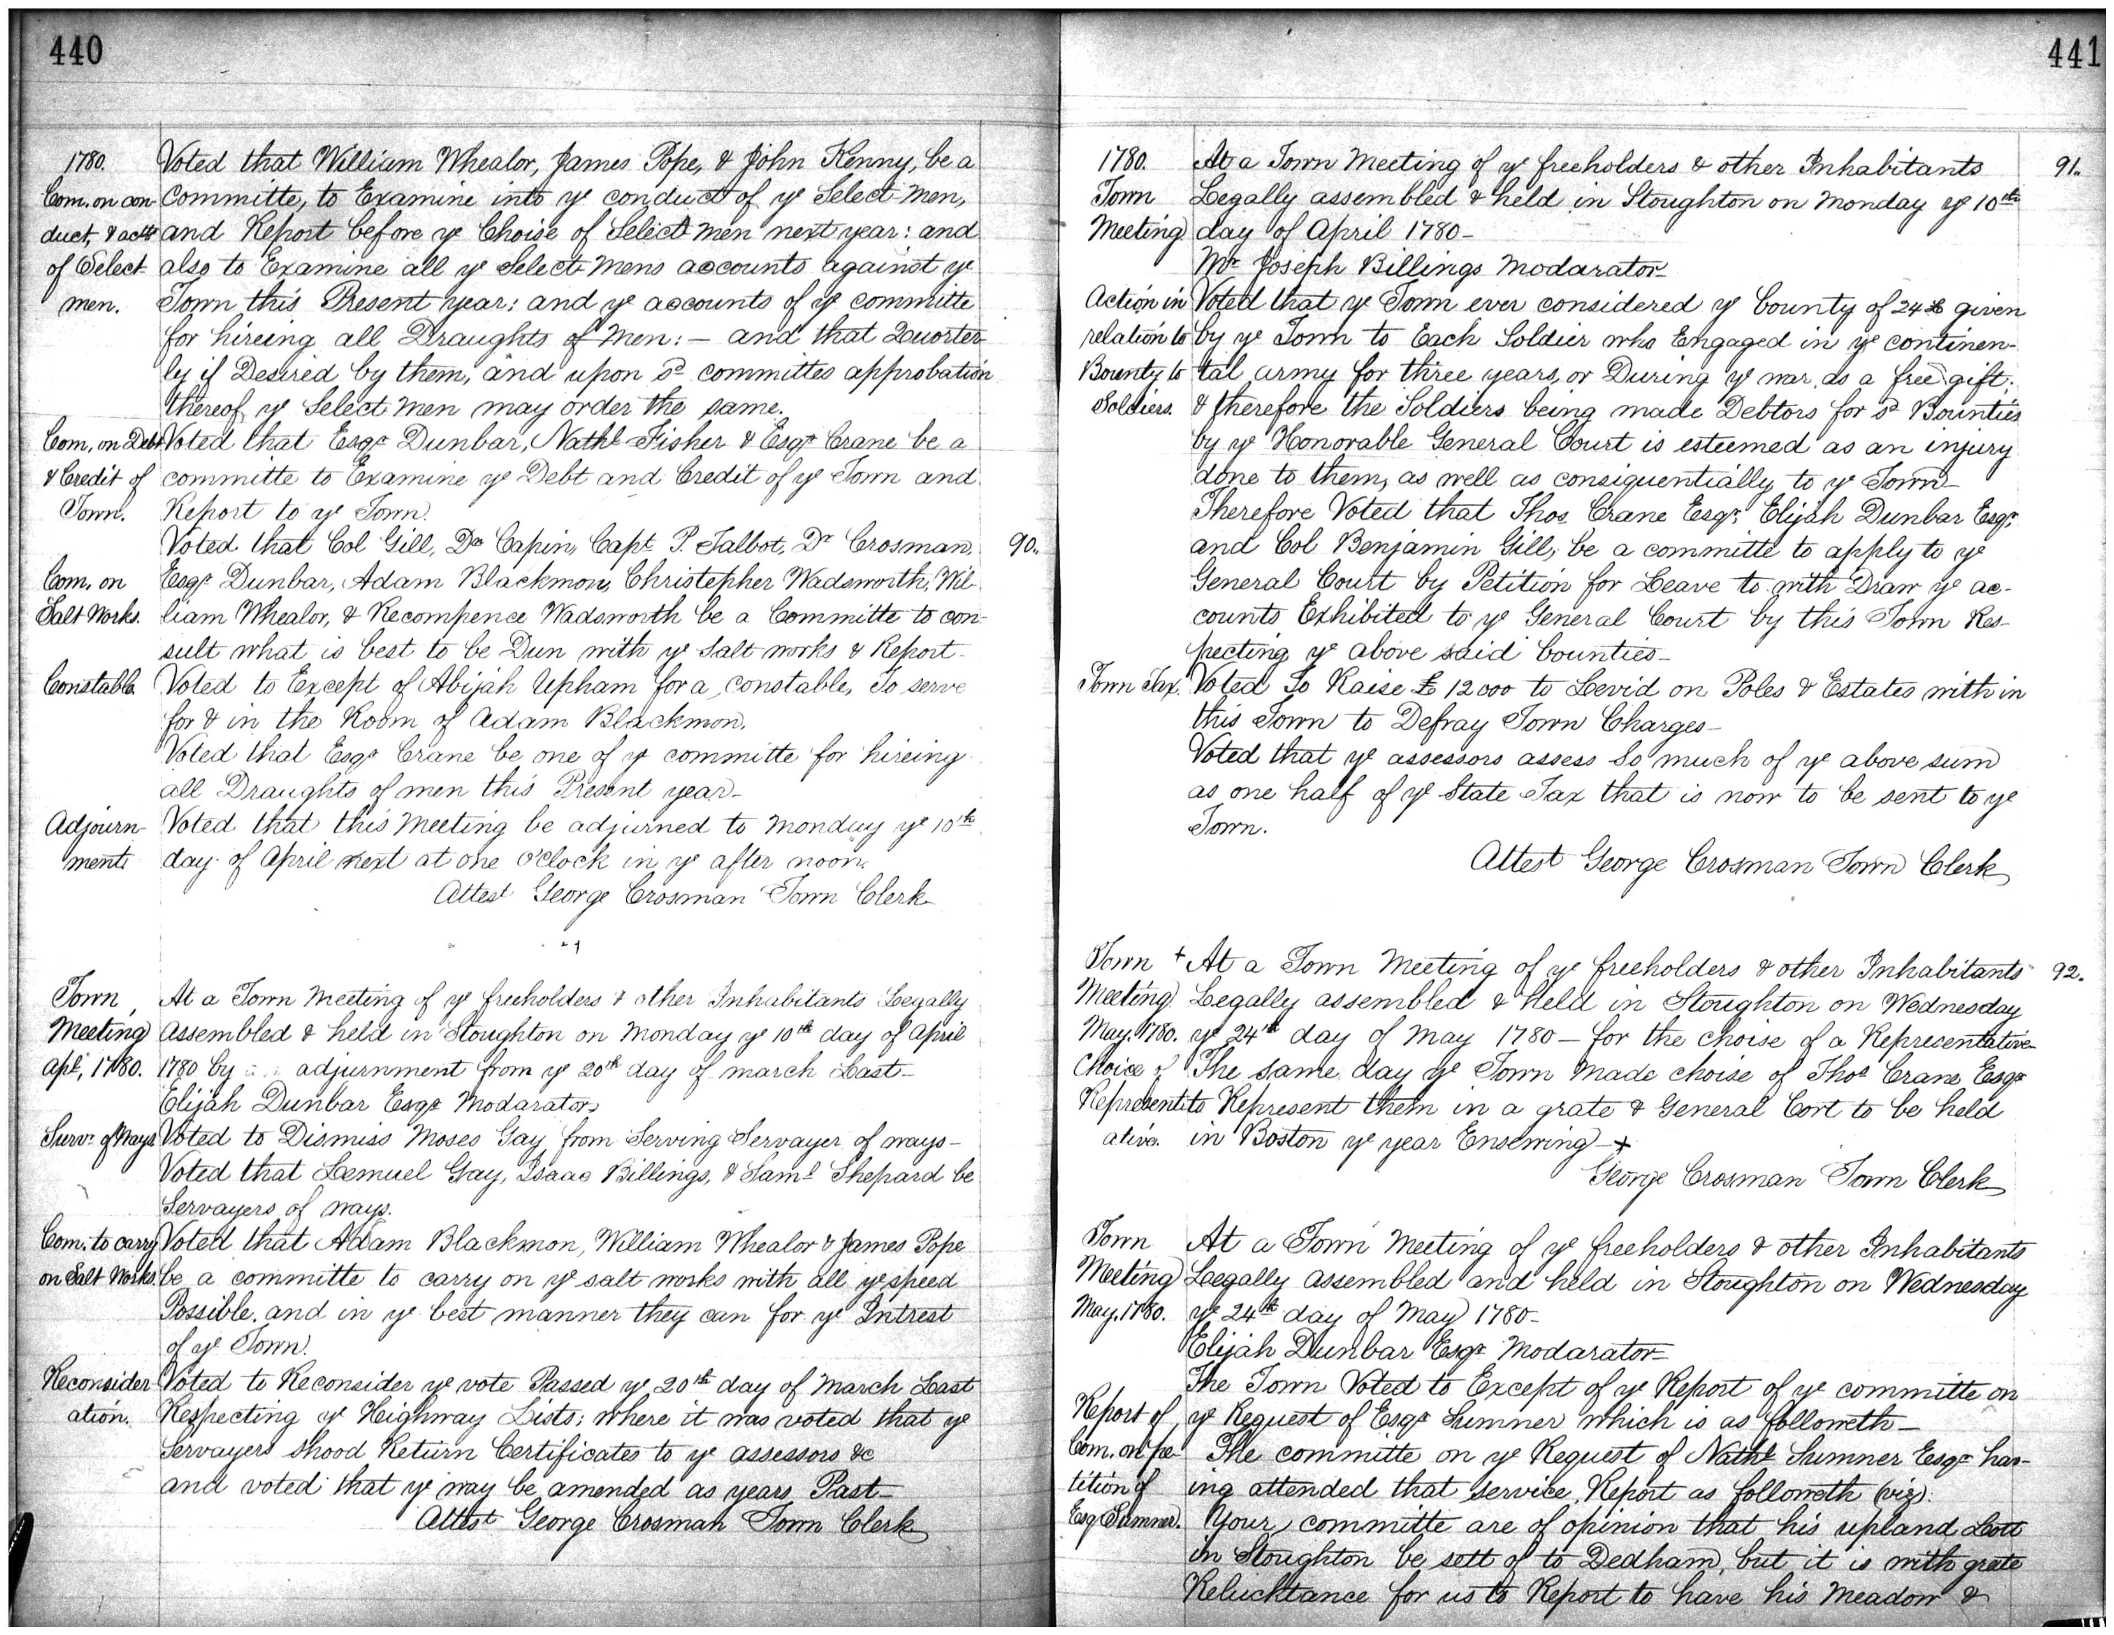 440
1780. Voted that William Whealor, James Pope, & John Kenny, be a
Com. on con- committe, to Examine into ye conduct of ye Select men,
duct, & actt and Report before ye Choise of Select men next year: and
of Select- also to Examine all ye Select mens accounts against ye
men. Town this Present year: and ye accounts of ye committe
for hireing all Draughts of Men: — and that Quorter-
ly if Desired by them, and upon sd committes approbation
thereof ye Select Men may order the same.
Com. on Debt Voted that Esqr Dunbar, Nathl Fisher & Esqr Crane be a
& Credit of committe to Examine ye Debt and Credit of ye Town and
Town. Report to ye Town.
Voted that Col Gill, Dea Capin, Capt P. Talbot, Dr Crosman, 90.
Com. on Esqr Dunbar, Adam Blackmon, Christepher Wadsworth, Wil-
Salt Works. liam Whealor, & Recompence Wadsworth be a Committe to con-
sult what is best to be Dun with ye Salt works & Report-
Constable Voted to Except of Abijah Upham for a constable, To serve
for & in the Room of Adam Blackmon.
Voted that Esqr Crane be one of ye committe for hireing
all Draughts of men this Present year-
Adjourn- Voted that this Meeting be adjurned to Monday ye 10th
ment day of April next at one o'clock in ye after noon.
Attest George Crosman Town Clerk
Town At a Town Meeting of ye freeholders & other Inhabitants Legally
Meeting Assembled & held in Stoughton on Monday ye 10th day of April
Apl, 1780. 1780 by adjurnment from ye 20th day of march Last-
Elijah Dunbar Esqr Modarator
Survr of Ways Voted to Dismiss Moses Gay from Serving Servayer of ways-
Voted that Lemuel Gay, Isaac Billings, & Saml Shepard be
Servayers of ways.
Com. to carry Voted that Adam Blackmon, William Whealor & James Pope
on Salt Works be a committe to carry on ye salt works with all ye speed
Possible, and in ye best manner they can for ye Intrest
of ye Town.
Reconsider Voted to Reconsider ye vote Passed ye 20th day of March Last
ation. Respecting ye Heighway Lists; where it was voted that ye
Servayers shood Return Certificates to ye assessors &c
and voted that ye way be amended as years Past-
Attest George Crosman Town Clerk
441
1780. At a Town Meeting of ye freeholders & other Inhabitants 91.
Town Legally assembled & held in Stoughton on Monday ye 10th
Meeting day of April 1780-
Mr Joseph Billings Modarator-
Action in Voted that ye Town ever considered ye bounty of 24 £ given
relation to by ye Town to Each Soldier who Engaged in ye continen-
Bounty to tal army for three years, or During ye war, as a free gift.
Soldiers. & therefore the Soldiers being made Debtors for sd Bounties
by ye Honorable General Court is esteemed as an injury
done to them, as well as consiquentially to ye Town-
Therefore Voted that Thos Crane Esqr, Elijah Dunbar Esqr,
and Col Benjamin Gill, be a committe to apply to ye
General Court by Petition for Leave to with Draw ye ac-
counts Exhibited to ye General Court by this Town Res-
pecting ye above said bounties-
Town Tax. Voted To Raise £ 12000 to Levid on Poles & Estates with in
this Town to Defray Town Charges-
Voted that ye assessors assess So much of ye above sum
as one half of ye State Tax that is now to be sent to ye
Town.
Attest George Crosman Town Clerk
Town + At a Town Meeting of ye freeholders & other Inhabitants 92.
Meeting Legally assembled & held in Stoughton on Wednesday
May. 1780. ye 24th day of May 1780 — for the choise of a Representative
Choice of The same day ye Town Made choise of Thos Crane Esqr
Represent to Represent them in a grate & General Cort to be held
ative. in Boston ye year Ensewing +
George Crosman Town Clerk
Town At a Town Meeting of ye freeholders & other Inhabitants
Meeting Legally assembled and held in Stoughton on Wednesday
May. 1780. ye 24th day of May 1780-
Elijah Dunbar Esqr Modarator-
The Town Voted to Except of ye Report of ye committe on
Report of ye Request of Esqr Sumner which is as followeth-
Com. on pe- The committe on ye Request of Nathl Sumner Esqr hav-
tition of ing attended that service, Report as followeth (viz).
Esq. Sumner. Your committe are of opinion that his upland Lott
in Stoughton be sett of to Dedham, but it is with grate
Relucktance for us to Report to have his Meadow &